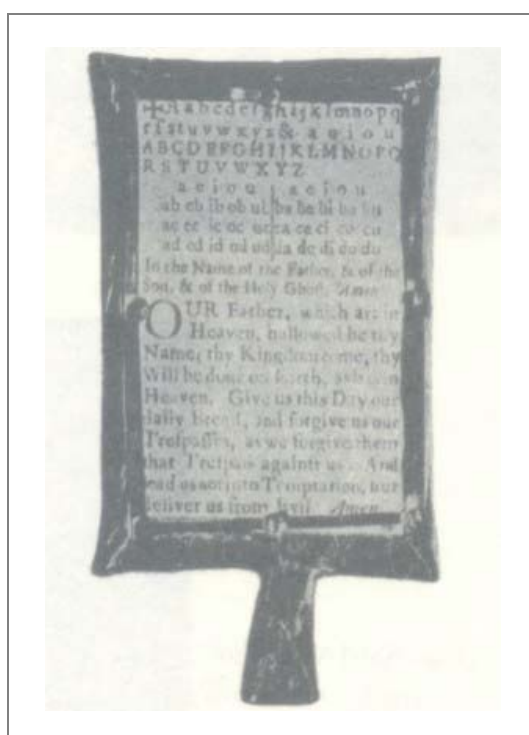 ✠Aabcdefghijklmnopq
rſstuvwxyz& aeiou
ABCDEFGHIJKLMNOPQ
RSTUVWXYZ
a e i o u | a e i o u
ab eb ib ob ub | ba be bi bo bu
ac ec ic oc uc | ca ce ci co cu
ad ed id od ud | da de di do du
In the Name of the Father, & of the
Son, & of the Holy Ghost. Amen
OUR Father, which art in
Heaven, hallowed be thy
Name; thy Kingdom come, thy
Will be done on Earth, as it is in
Heaven. Give us this Day our
daily Bread, and forgive us our
Treſpaſſes, as we forgive them
that Treſpaſs againſt us. And
lead us not into Temptation, but
deliver us from Evil. Amen